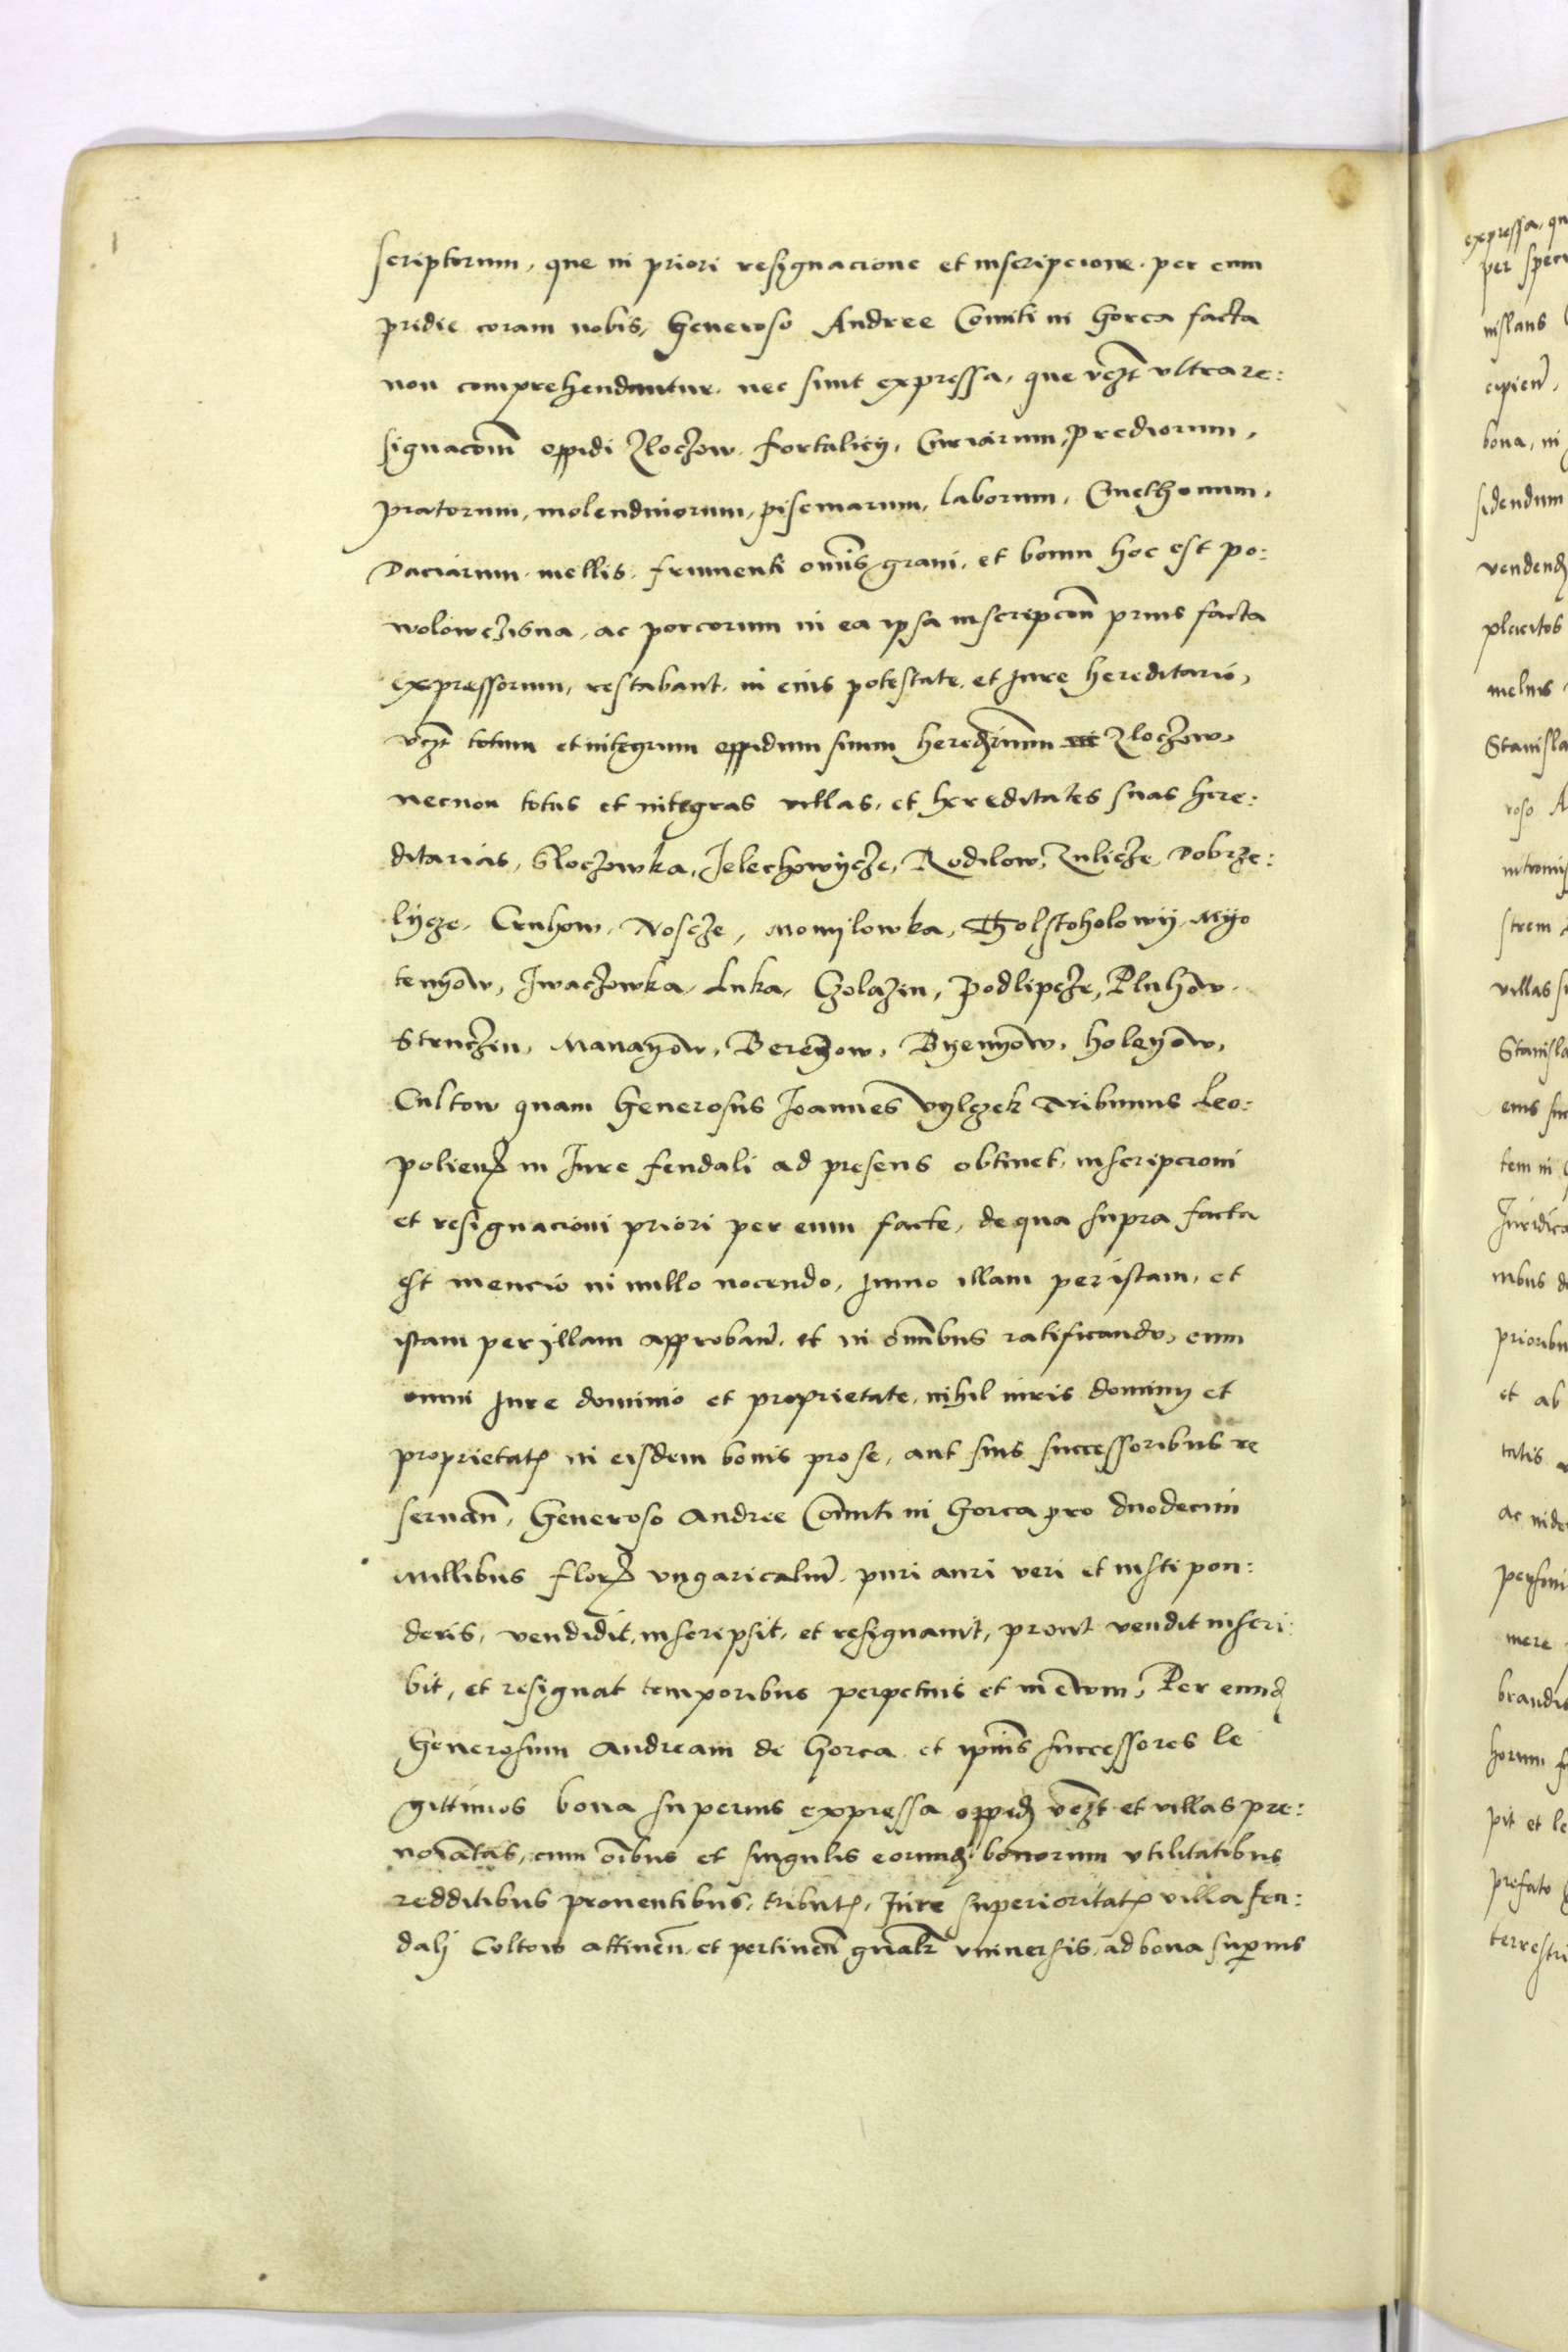 scriptorum, que in priori resignacione et inscripcione per eum
pridie coram nobis, Generoso Andree Comiti in Gorca facta
non comprehenduntur nec sunt expressa, que vczt ultra re:
signacom oppidi Zloczow fortalicij, Curiarum, prediorum,
pratorum, molendinorum, piscinarum, laborum, Cmethonum,
Daciarum mellis, frumenti omnis grani, et boum hoc est po:
wolowczisna, ac porcorum in ea ipsa inscripcom prius facta
expressorum, restabant in eius potestate et Jure hereditario,
vczt totum et integrum oppidum suum heredz Zloczow,
necnon totas et integras villas, et hereditates suas here:
ditarias, Sloczowka, Jelechowycze, Rodilow, Zulicze Dobrze:
lycze, Cruhow, Noscze, Momylowka, Tholstoholowy Myo
tenyow, Jwaczowka Luka, Gzolazin, Podlipcze, Pluhow
Struczin, Manayow, Berezow, Byenyow, Holeyow,
Cultow quam Generosus Joannes Vylczek Tribunus Leo:
polien in Jure feudali ad presens obtinet, inscripcioni
et resignacioni priori per eum facte, de qua supra facta
est mencio in nullo nocendo, Jmmo illam per istam, et
istam per illam approban et in omnibus ratificando, cum
omni Jure dominio et proprietate, nihil iuris dominij et
proprietatis in eisdem bonis pro se, aut suis successoribus re
seruan, Generoso Andree Comiti in Gorca pro duodecim
millibus flor vngaricalium puri auri veri et iusti pon:
deris, vendidit, inscripsit, et resignauit, prout vendit inscri
bit, et resignat temporibus perpetuis et in ewm, Per eund
Generosum Andream de Gorca et ipius successores le
gittimos bona superius expressa oppid vczt et villas pre:
noiatas, cum oibus et singulis eorund bonorum vtilitatibus
redditibus prouentibus, tributis, Jure superioritatis villa feu:
dalj Coltow attinen et pertinen gnalr vniuersis, ad bona superius
expressa, qu
per spec
nislaus
cipien,
bona, in
sidendum
vendend
placitos
melius
Stanisla
roso A
intromis
strem
villas s
Stanisla
eius suc
tem in
Juridica
nibus
prioribu
et ab
tatis
ac
mere
brandis
horum
pit et le
prefato
terrestri